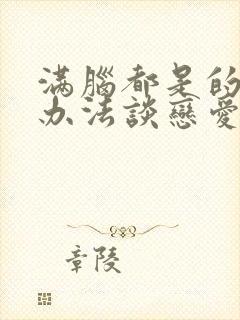 滿腦都是的
办法談戀愛
章陵